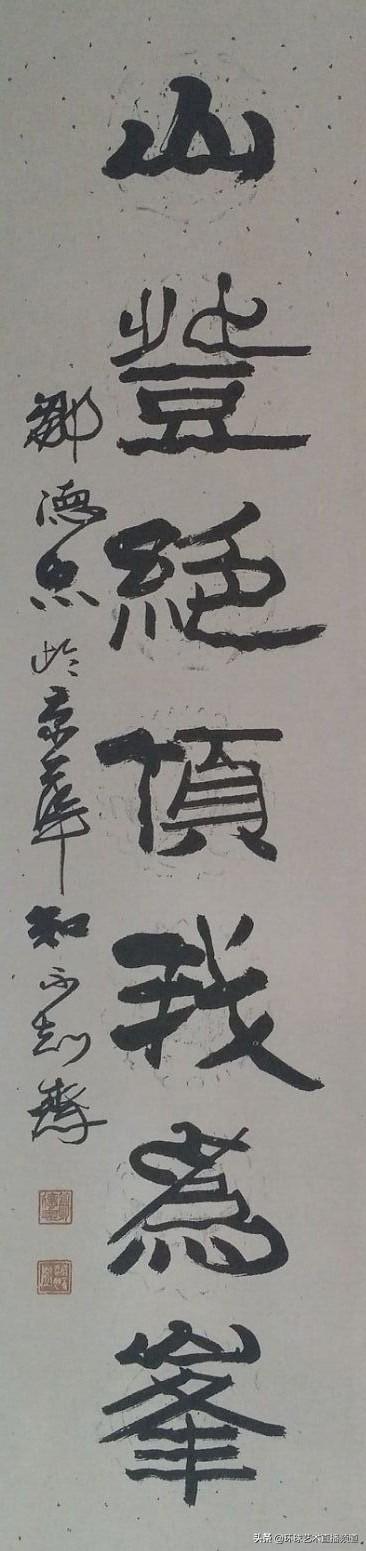 山登絕頂我為峯
鄒德忠於京華知不知齋
头条 @环球艺术直播频道